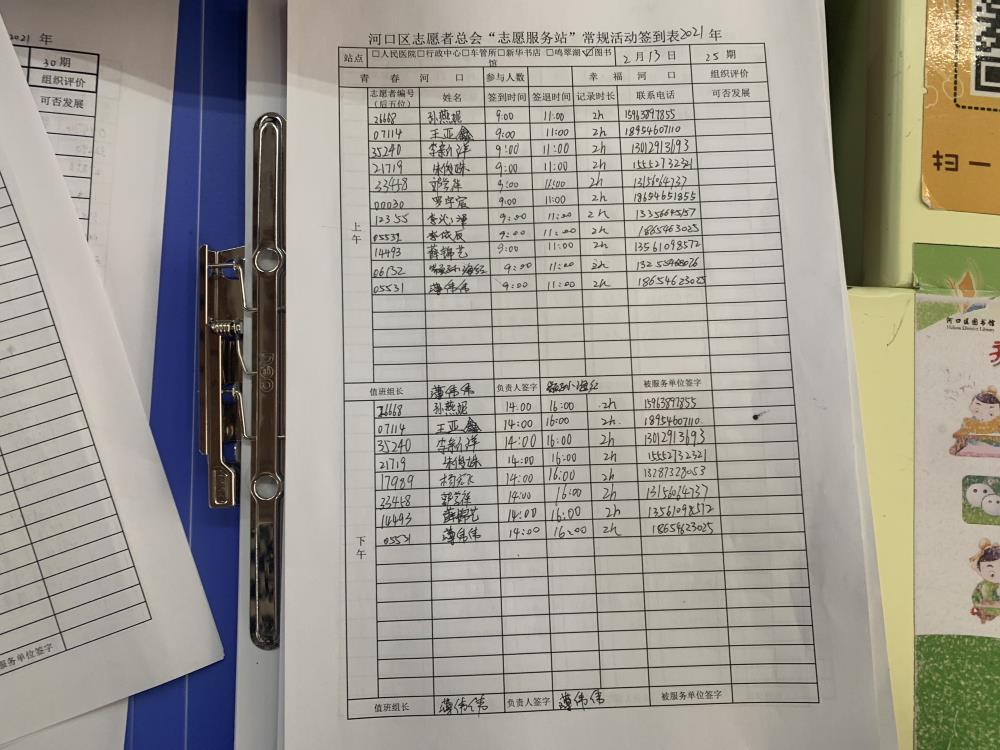 2021 年
30 期
组织评价
可否发展
服务单位签字
河口区志愿者总会“志愿服务站”常规活动签到表2021 年
站点 □人民医院□行政中心□车管所□新华书店 □鸣翠湖☑图书馆 2 月 13 日 25 期
青 春 河 口 参与人数 幸 福 河 口 组织评价
志愿者编号（后五位） 姓名 签到时间 签退时间 记录时长 联系电话 可否发展
上午
26668 孙燕妮 9:00 11:00 2h 15963897855
07114 王亚鑫 9:00 11:00 2h 18954607110
35240 李新洋 9:00 11:00 2h 13012913693
21719 朱俊姝 9:00 11:00 2h 15552732321
33458 9:00 11:00 2h 13156064737
00030 罗宇宸 9:00 11:00 2h 18654651855
12355 9:00 11:00 2h
05531 9:00 11:00 2h 1865463025
14493 薛锦艺 9:00 11:00 2h 13561098572
06132 9:00 11:00 2h
05531 薄伟伟 9:00 11:00 2h 18654623025
值班组长 薄伟伟 负责人签字 被服务单位签字
下午
26668 孙燕妮 14:00 16:00 2h 15963897855
07114 王亚鑫 14:00 16:00 2h 18954607110
35240 李新洋 14:00 16:00 2h 13012913693
21719 朱俊姝 14:00 16:00 2h 15552732321
17989 14:00 16:00 2h 13287328053
33458 14:00 16:00 2h 13156064737
14493 薛锦艺 14:00 16:00 2h 13561098572
05531 薄伟伟 14:00 16:00 2h 18654623025
值班组长 薄伟伟 负责人签字 薄伟伟 被服务单位签字
扫一
河口区图书馆
Hekou District Library